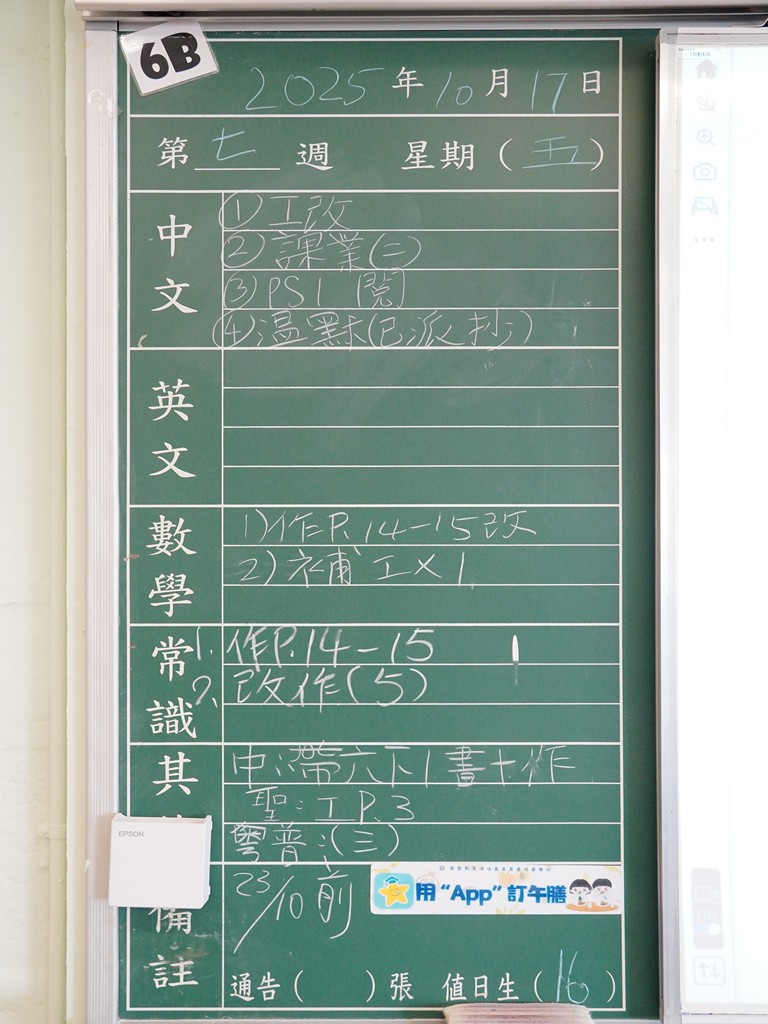 6B
2025年10月17日
第七週 星期(五)
中文
①工改
②課業(二)
③PS1 閱
④溫默(已派抄)
英文
數學
1)作P.14-15改
2)補工×1
常識
1.作P.14-15
2.改作(5)
其
中:帶六下1書+作
聖:工P.3
粵普:(三)
EPSON
備註
23/10前
用“App”訂午膳
通告( )張 值日生(16)